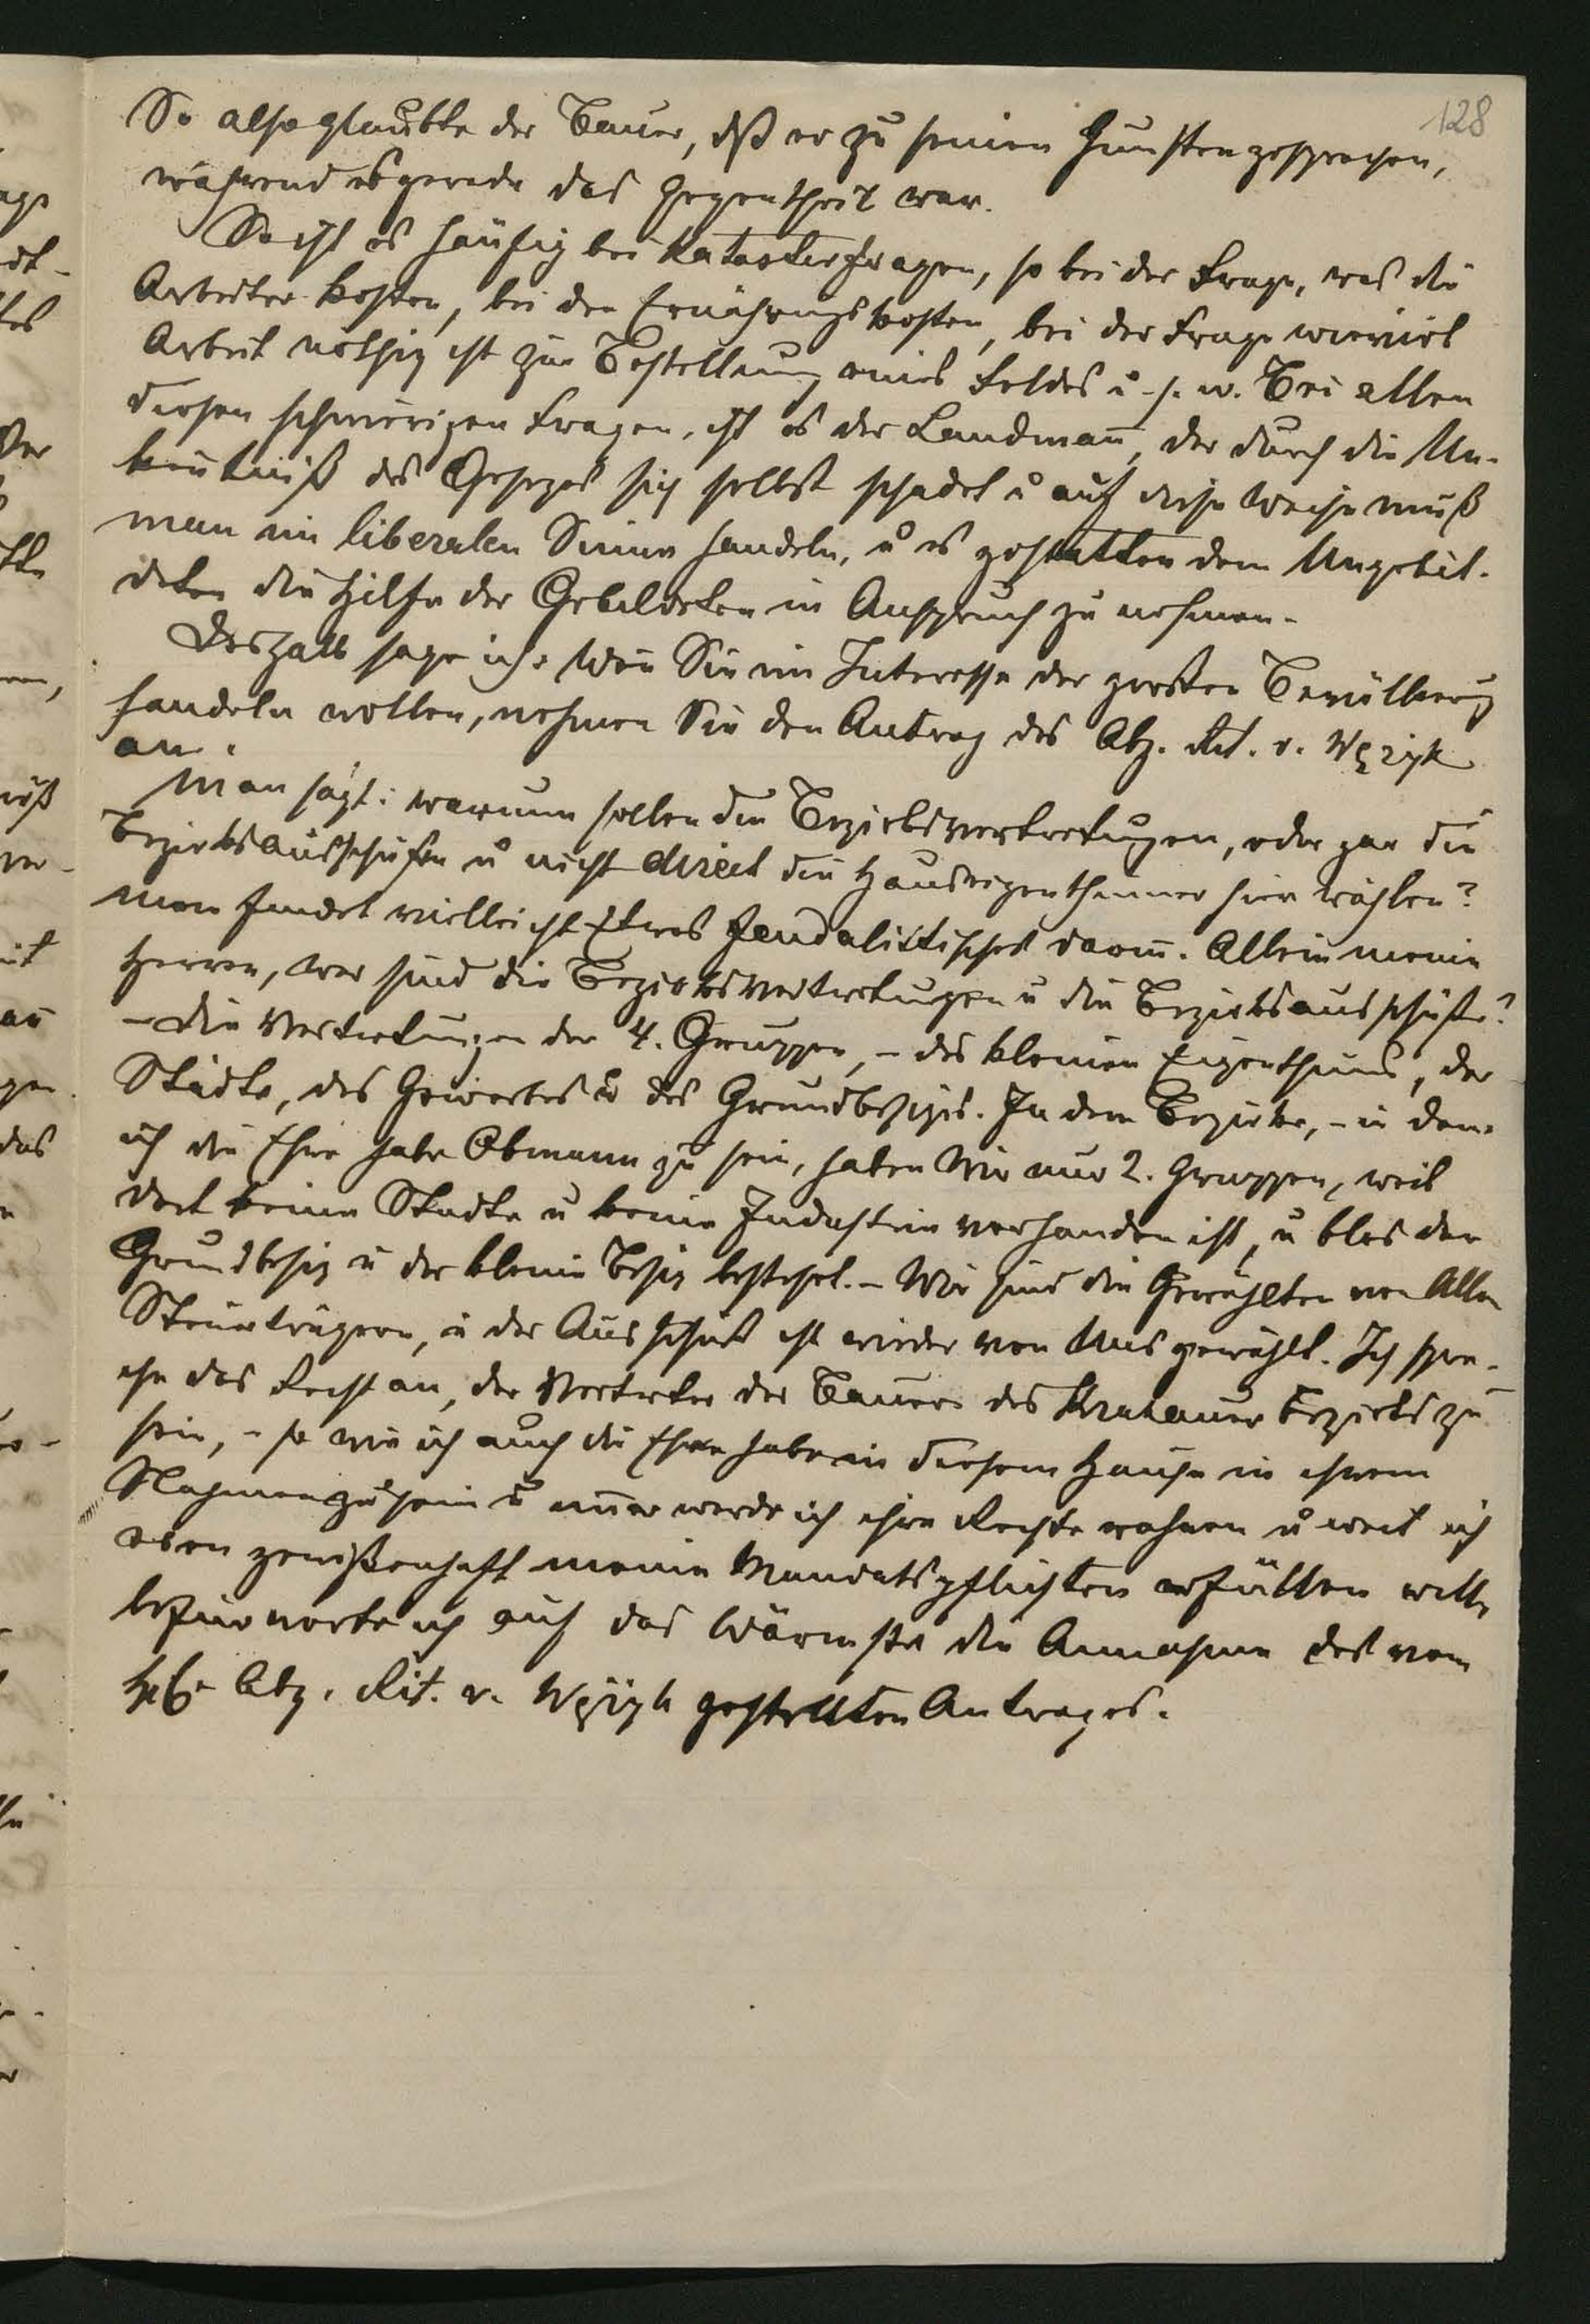 128
So also glaubte der Bauer, dß er zu seinen Gunsten gesprochen,
während es gerade das Gegentheil war.
So ist es häufig bei Katasterfragen, so bei der Frage, was die
Arbeiter kosten, bei den Ernährungskosten, bei der Frage wieviel
Arbeit nöthig ist zur Bestellung eines Feldes u. s. w. Bei allen
diesen schwierigen Fragen, ist es der Landmañ, der durch die Un-
keñtniß des Gesezes sich selbst schadet u auf diese Weise muß
man im liberalen Sinne handeln, u es gestatten dem Ungebil-
deten die Hilfe der Gebildeten in Anspruch zu nehmen.
Deshalb sage ich: Weñ Sie im Interesse der großen Bevölkerug
handeln wollen, nehmen Sie den Antrag des Abg. Rit. v. Wężyk
an.
Man sagt: warum sollen die Bezirksvertretugen, oder gar die
Bezirksausschüße u nicht direct die Hauseigenthümer hier wählen?
Man findet vielleicht Etwas feudalistisches dariñ. Allein meine
Herren, wer sind die Bezirksvertretungen u die Bezirksausschüße?
– Die Vertretungen der 4. Gruppen, – des kleinen Eigenthums, der
Städte, des Gewerbes u des Grundbesizes. In dem Bezirke, – in dem
ich die Ehre habe Obmann zu sein, haben Wir nur 2. Gruppen, weil
dort keine Städte u keine Industrie vorhanden ist, u blos der
Grundbesiz u der kleine Besiz besteht. – Wir sind die Gewählten von Allen
Steuerträgern, u der Ausschuß ist wieder von Uns gewählt. Ich spre-
che das Recht an, der Vertreter der Bauern des Krakauer Bezirks zu
sein, – so wie ich auch die Ehre habe in diesem Hause in ihrem
Nahmen zu sein u im̄er werde ich ihre Rechte wahren u weil ich
eben gewißenhaft meine Mandatspflichten erfüllen will,
befürworte ich auf das Wärmste die Annahme des vom
Abg. Rit. v. Wężyk gestellten Antrages.